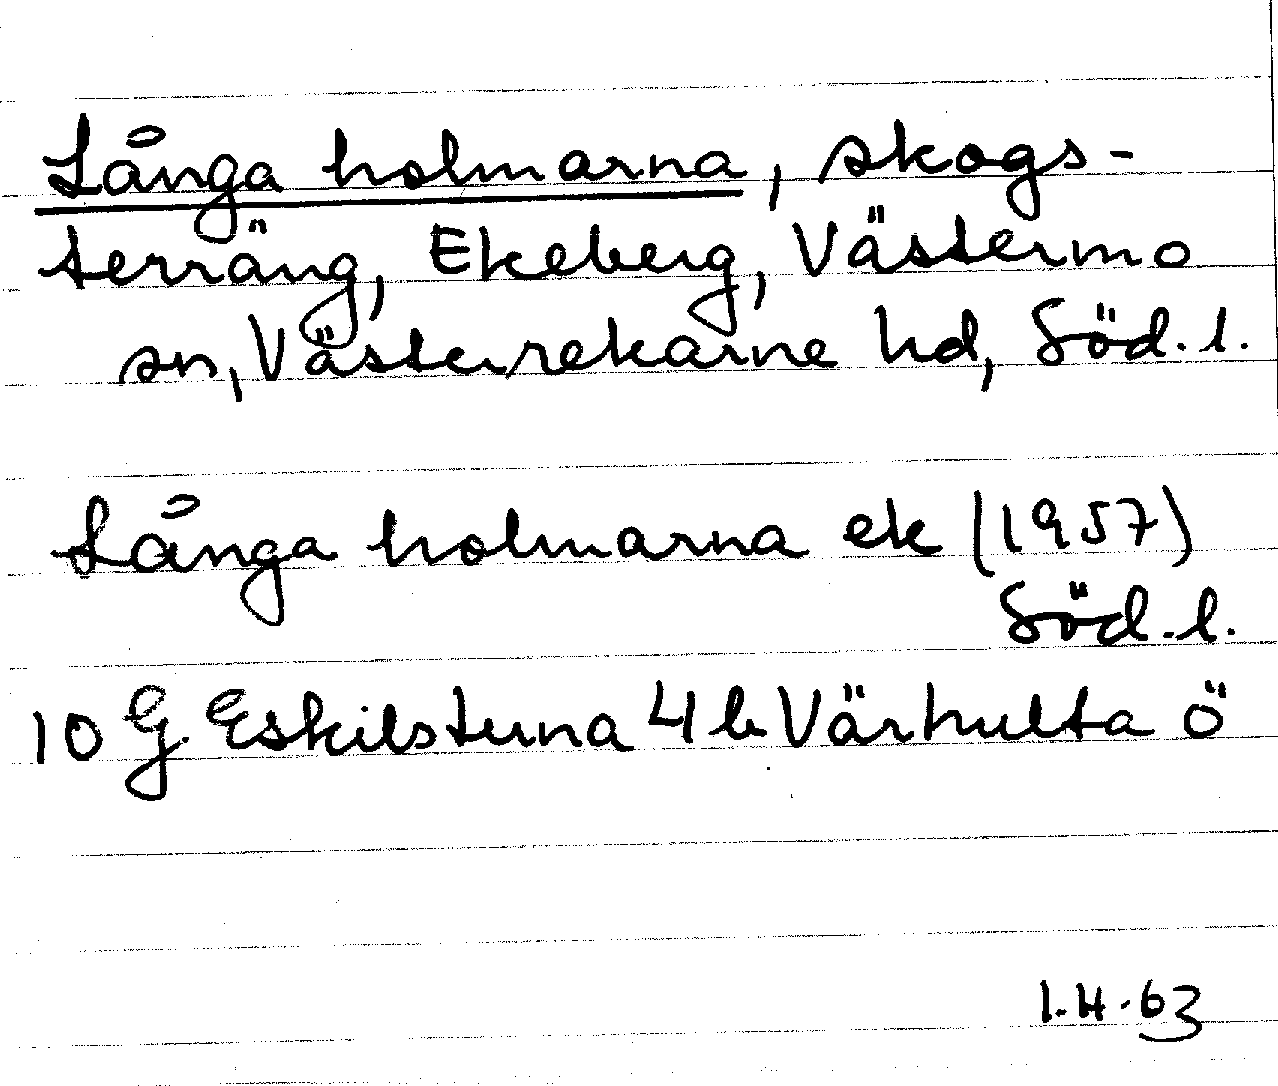 Långa holmarna, skogs-
terräng, Ekeberg, Västermo
sn, Västerrekarne hd, Söd. l.
Långa holmarna ek (1957)
Söd. l.
10 G. Eskilstuna 4 b Värhulta ö
I.H.63